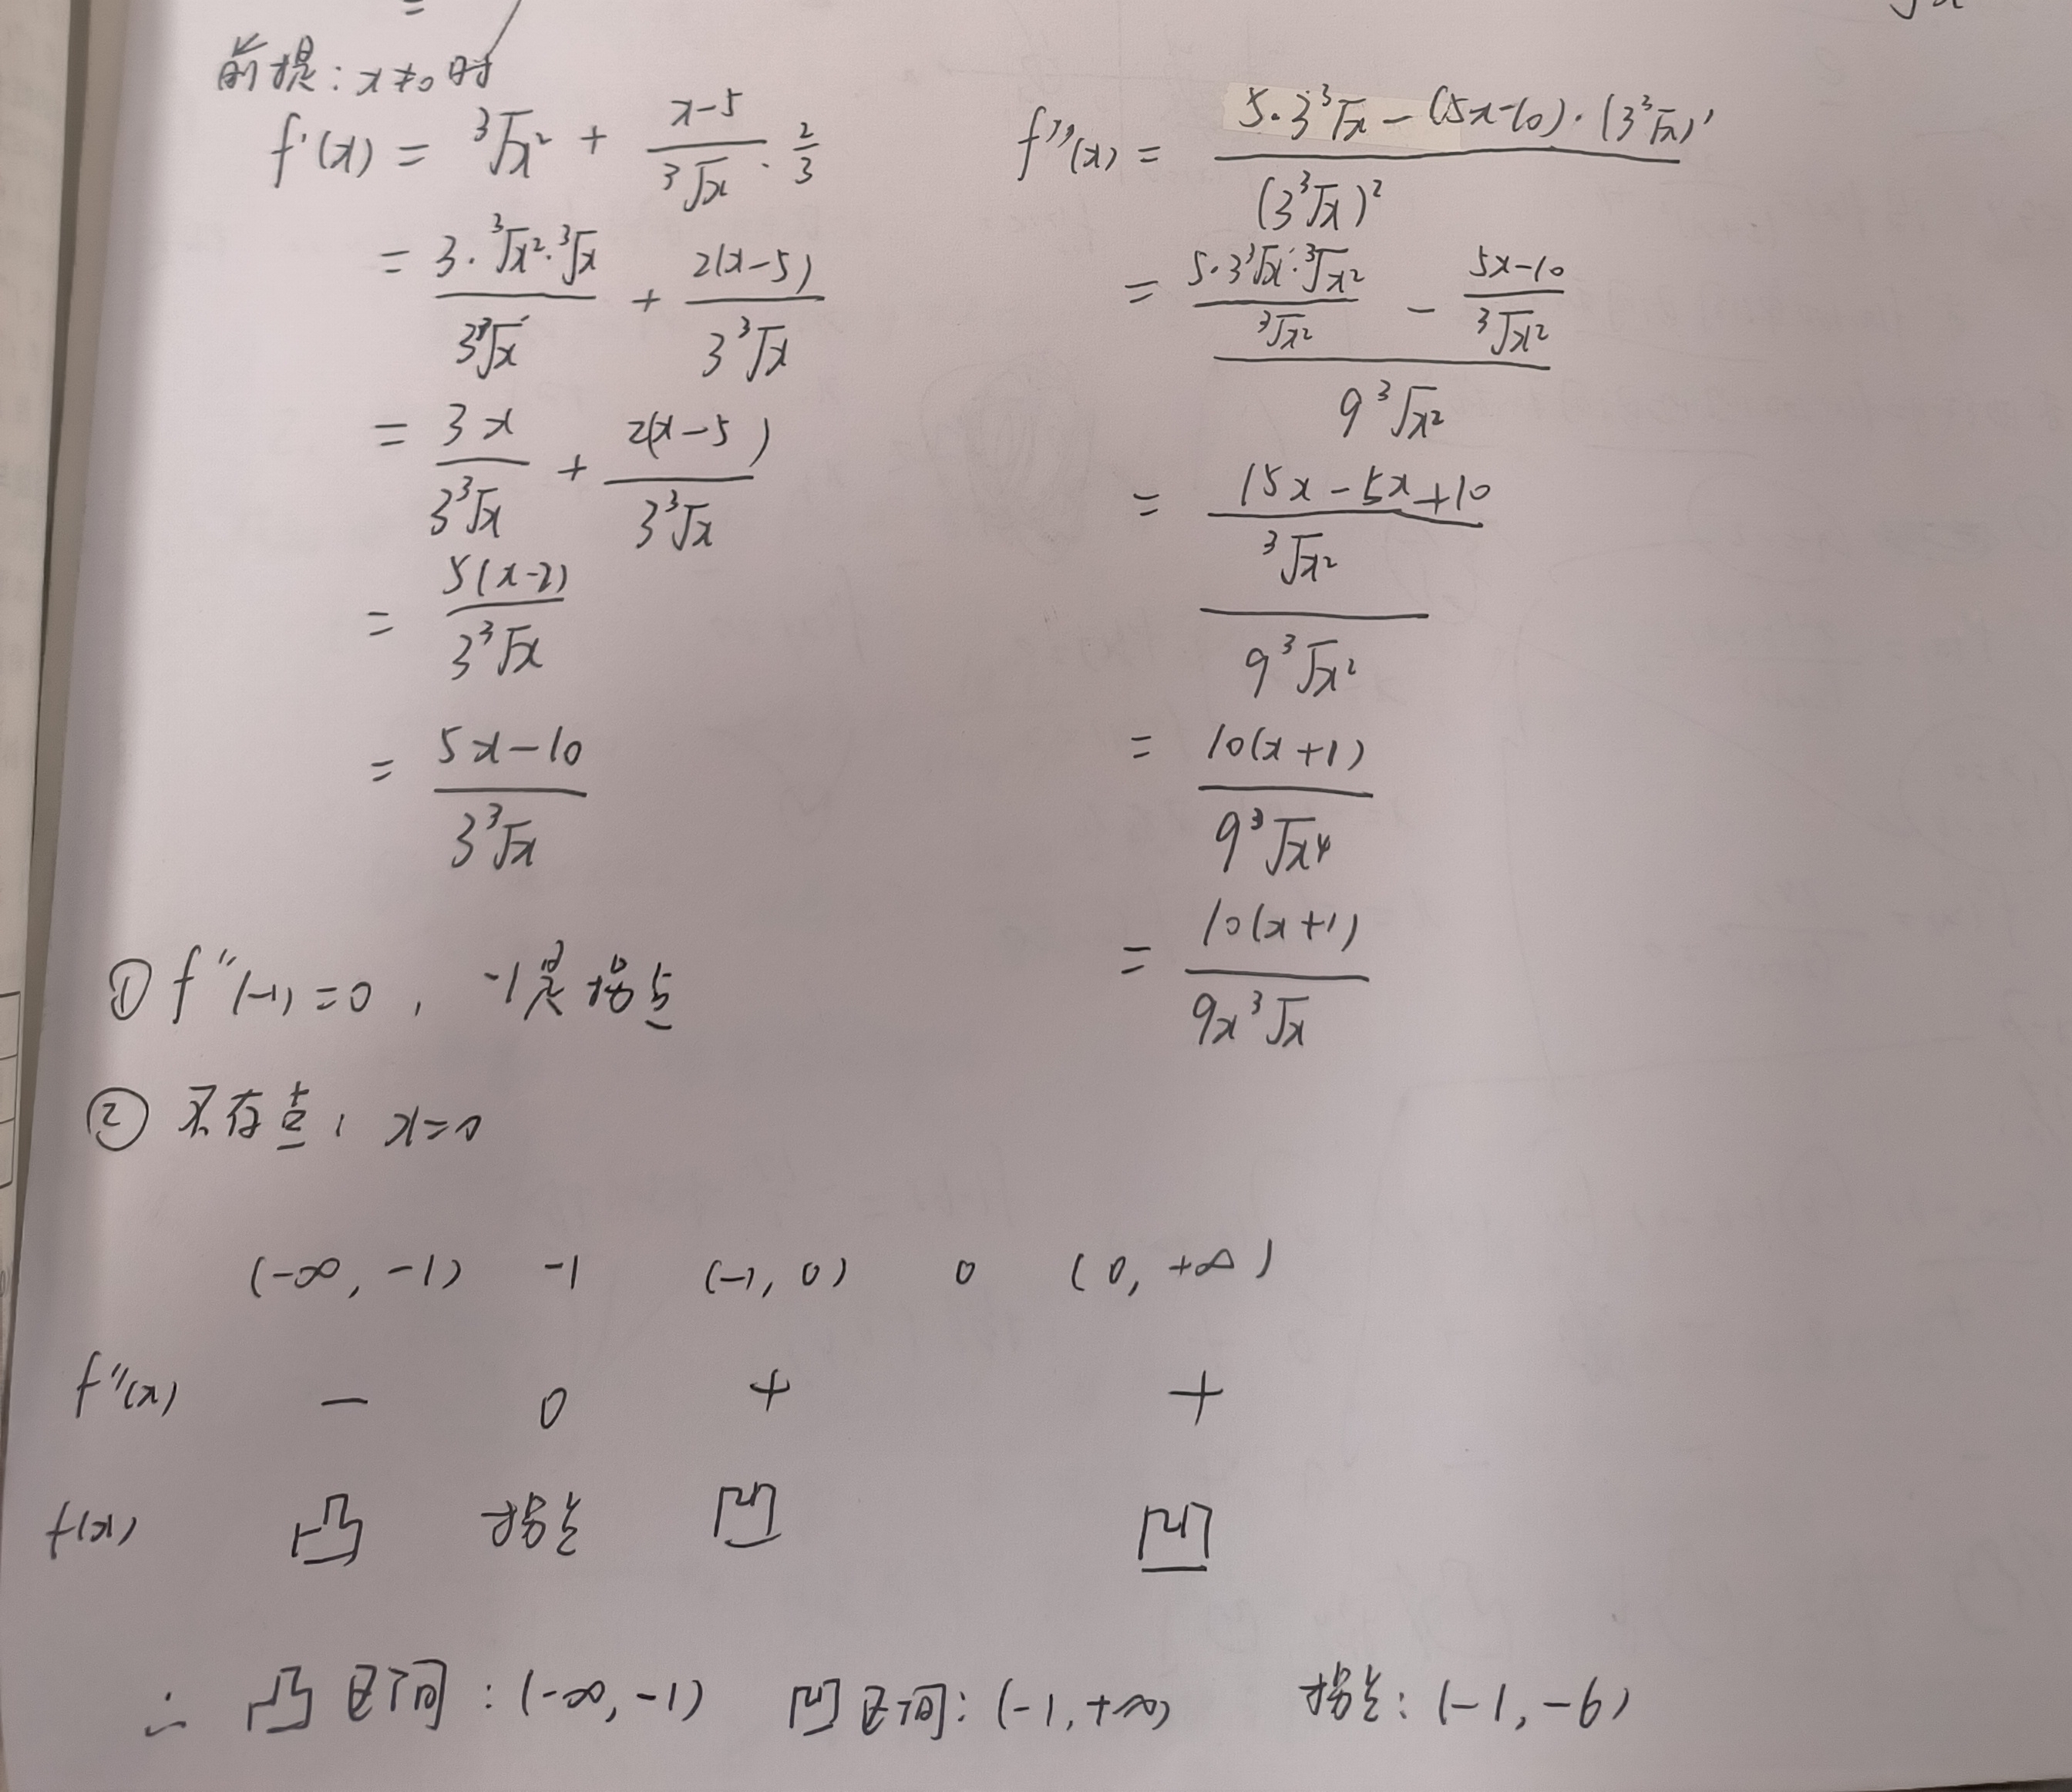 =
前提：x≠0时
f'(x) = ³√x² + (x-5)/(³√x) · 2/3
= (3·³√x²·³√x)/(3³√x) + 2(x-5)/(3³√x)
= 3x/(3³√x) + 2(x-5)/(3³√x)
= 5(x-2)/(3³√x)
= (5x-10)/(3³√x)
f''(x) = (5·3³√x-(5x-10)·(3³√x)')/(3³√x)²
= ((5·3³√x·³√x²)/(³√x²) - (5x-10)/(³√x²))/(9³√x²)
= ((15x-5x+10)/(³√x²))/(9³√x²)
= 10(x+1)/(9³√x⁴)
= 10(x+1)/(9x³√x)
① f''(-1)=0, -1是拐点
② 不存点, x=0
(-∞, -1) -1 (-1, 0) 0 (0, +∞)
f''(x) - 0 + +
f(x) 凸 拐点 凹 凹
∴ 凸区间:(-∞,-1) 凹区间:(-1,+∞) 拐点:(-1,-6)